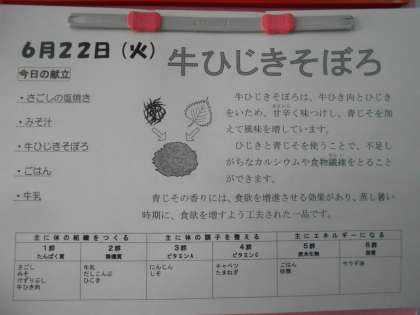 6月22日（火）
牛ひじきそぼろ
今日の献立
・さごしの塩焼き
・みそ汁
・牛ひじきそぼろ
・ごはん
・牛乳
牛ひじきそぼろは、牛ひき肉とひじき
をいため、甘辛く味つけし、青じそを加
えて風味を増しています。
ひじきと青じそを使うことで、不足し
がちなカルシウムや食物繊維をとること
ができます。
青じその香りには、食欲を増進させる効果があり、蒸し暑い
時期に、食欲を増すよう工夫された一品です。
主に体の組織をつくる 主に体の調子を整える 主にエネルギーになる
1群 2群 3群 4群 5群 6群
たんぱく質 無機質 ビタミンA ビタミンC 炭水化物 脂質
さごし 牛乳 にんじん キャベツ ごはん サラダ油
みそ だしこんぶ しそ たまねぎ 砂糖
けずりぶし ひじき
牛ひき肉